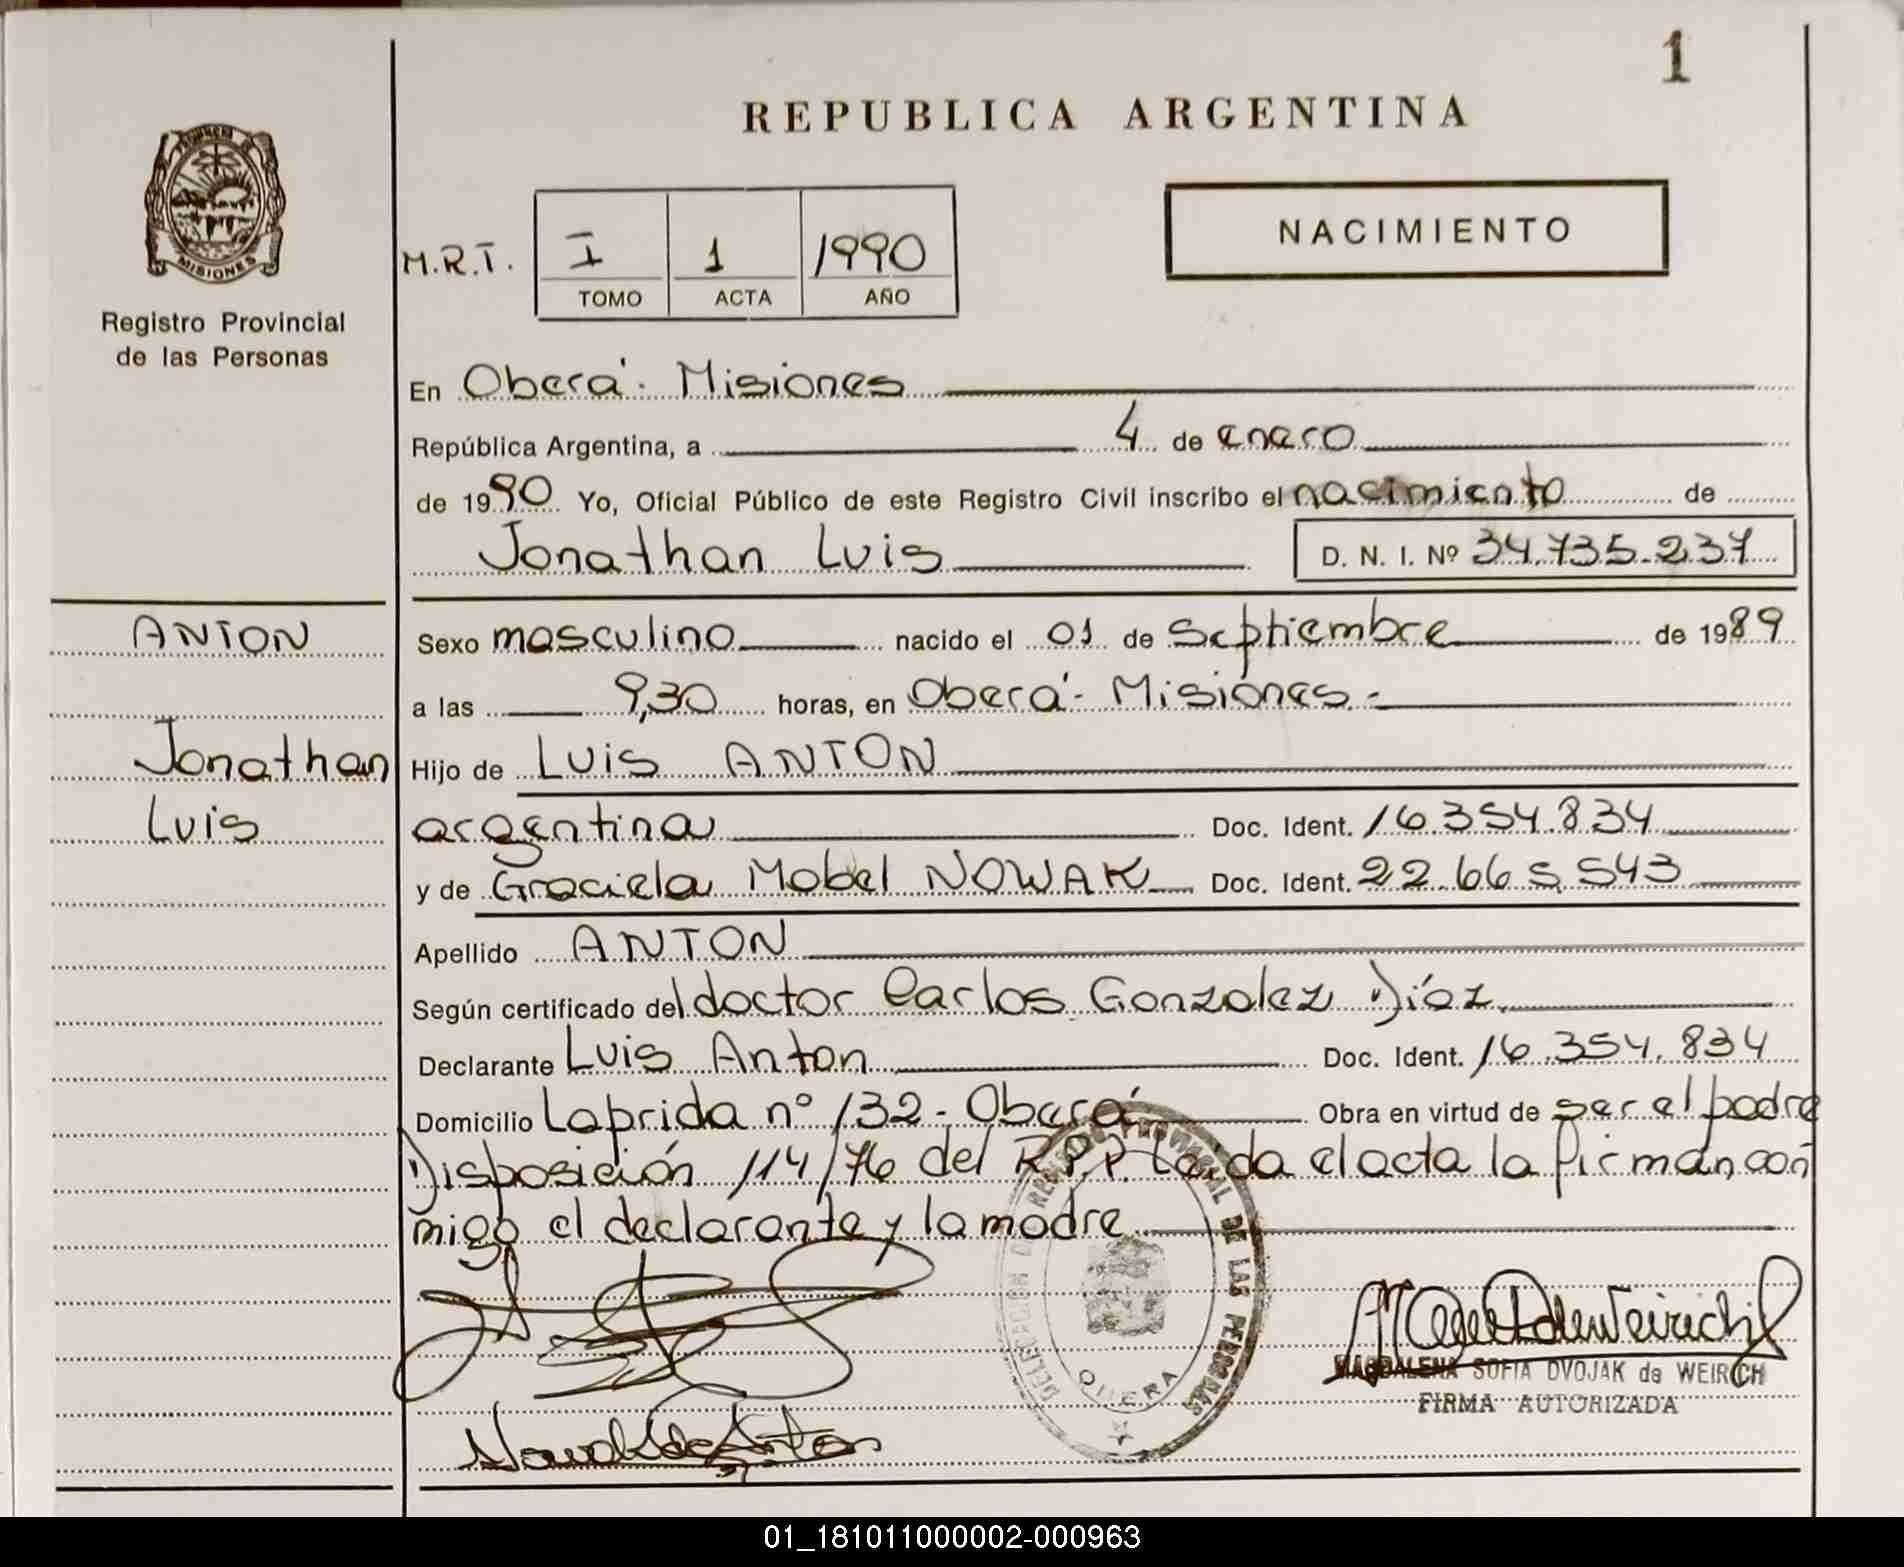 1
REPUBLICA ARGENTINA
MISIONES
Registro Provincial
de las Personas
M.R.T. I 1 1990
TOMO ACTA AÑO
NACIMIENTO
En Oberá - Misiones
República Argentina, a 4 de enero
de 1990 Yo, Oficial Público de este Registro Civil inscribo el nacimiento de
Jonathan Luis D. N. I. Nº 34.735.237
ANTON
Jonathan
Luis
Sexo masculino nacido el 01 de Septiembre de 1989
a las 9,30 horas, en Oberá - Misiones -
Hijo de Luis ANTON
argentina Doc. Ident. 16.354.834
y de Graciela Mabel NOWAK Doc. Ident. 22.665.543
Apellido ANTON
Según certificado del doctor Carlos Gonzalez Díaz
Declarante Luis Anton Doc. Ident. 16.354.834
Domicilio Laprida nº 132 - Oberá Obra en virtud de ser el padre
Disposición 114/76 del R.P.P. Leída el acta la firman con
migo el declarante y la madre
DELEGACION DEL REGISTRO PROVINCIAL DE LAS PERSONAS
OBERA
MAGDALENA SOFIA DVOJAK de WEIRICH
FIRMA AUTORIZADA
Nowak de Anton
01_181011000002-000963